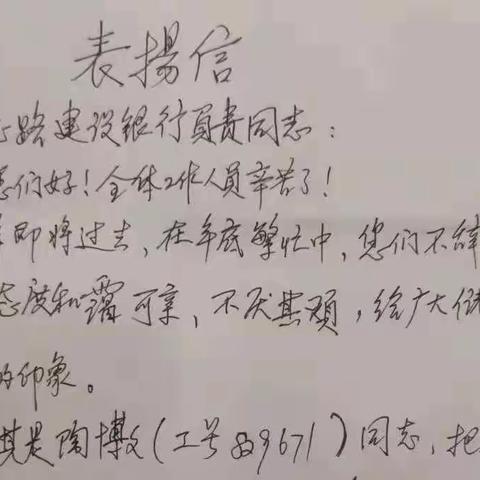 表揚信
路建设银行负责同志:
您们好!全体工作人员辛苦了!
即将过去,在年底繁忙中,您们不辞
态度和霭可亲,不厌其烦,给广大储
的印象。
其是陶博文(工号 9671)同志,把